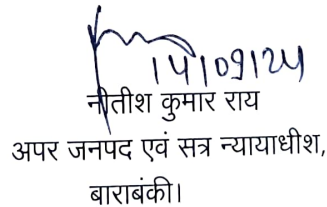 14/09/24
नीतीश कुमार राय
अपर जनपद एवं सत्र न्यायाधीश,
बाराबंकी।